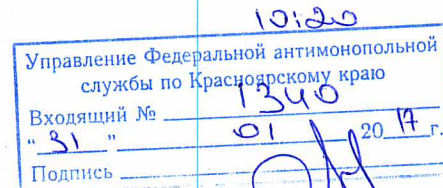 10:20
Управление Федеральной антимонопольной
службы по Красноярскому краю
Входящий № 1340
"31" 01 2017 г.
Подпись